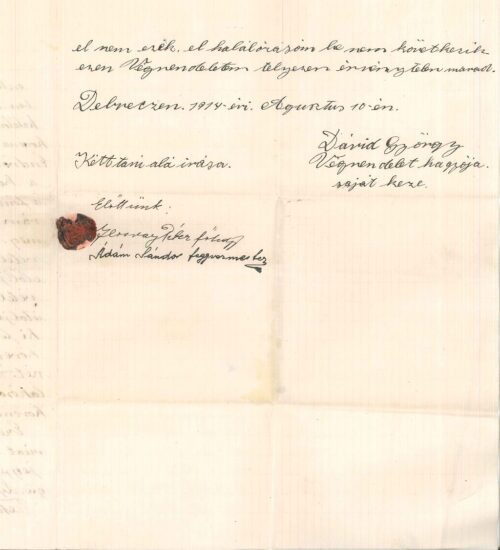 el nem esék, el halálórásom be nem következik
ezen Végrendeletem telyesen érvénytelen marad.
Debreczen. 1914 évi. Agustus 10-én.
Dávid György
Végrendelet hagyója
saját keze.
Kétt tani alá írása.
Előttünk.
Péter
Ádám Sándor fegyvermester